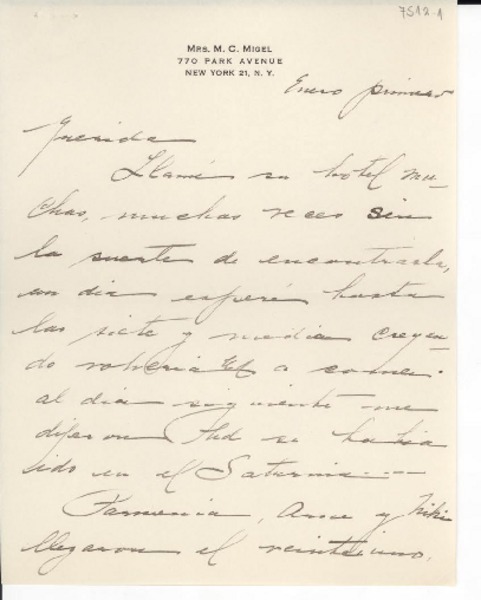 7512-1
MRS. M. C. MIGEL
770 PARK AVENUE
NEW YORK 21, N. Y.
Enero primero
Querida
Llamé su hotel mu-
chas, muchas veces sin
la suerte de encontrarla,
un dia esperé hasta
las siete y media creyen-
do volveria Ud a comer.
al dia siguiente me
dijeron Ud se habia
ido en el Saturnia ----
Parmenia, Anne y Niki
llegaron el veintiuno,